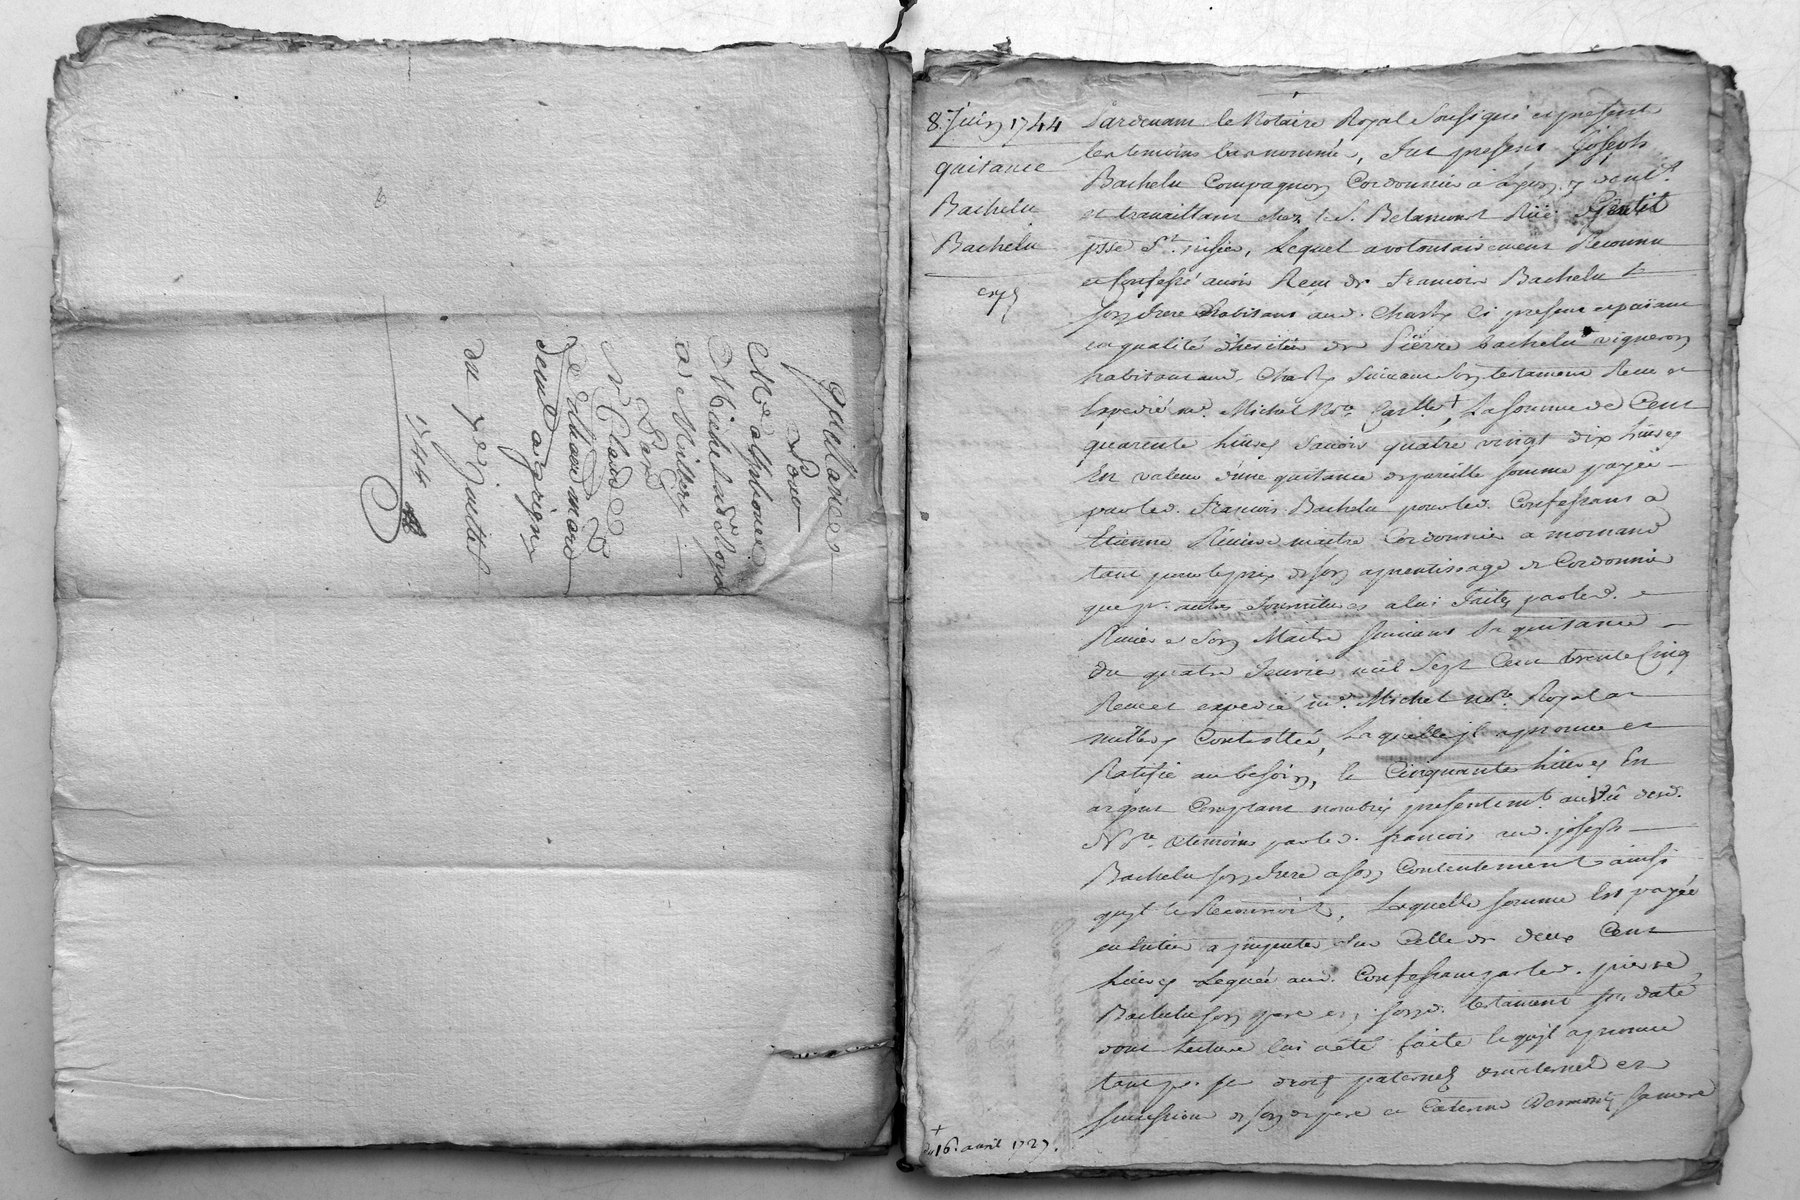 Quittance
Pour
Michel
a Millery
du 7e Juillet
1744
8. Juin 1744
quitance
Bachelu
Bachelu
Pardevant le Notaire Royal Soussigné et present
les temoins bas nommés, fut present joseph
Bachelu Compagnon Cordonnier a Lyon y demt.
et travaillant chez le S. Betancourt Rüe
psse St. nisier, Lequel a volontairement Reconnu
et Confessé avoir Reçu de Francois Bachelu
son frere habitant aud. Charly Ci present et paiant
en qualité d'heritier de Pierre bachelu vigneron
habitant aud. Charly Suivant Son testament Reçu et
Expedié me. Michel Nore. Gardte +, La somme de Cent
quarente Livres Savoir quatre vingt dix Livres
En valeur d'une quitance de pareille somme payée
par led. Francois Bachelu pour led. Confessant a
Etienne Riviere maitre Cordonnier a mornand
tant pour le prix de son aprentissage de Cordonnier
que pr. autres fournitures a lui faites par led.
Riviere Son Maitre Suivant la quitance
du quatre Janvier mil Sept Cent trente Cinq
Receu et expedié me. Michel nore. Royal a
millery Controllée, Laquelle il aprouve et
Ratifie au besoin, le Cinquante Livres En
argent Comptant nombrés presentemt. au Vû dud.
Nre. et temoins par led. francois aud. joseph
Bachelu son frere a son Contentement ainsi
qu'il le Reconnoit, Laquelle somme Est payée
en entier a imputer Sur Celle de deux Cent
Livres Leguée aud. Confessant par led. pierre
Bachelu son pere en sond. testament sus daté
dont Lecture lui a eté faite le qu'il aprouve
tant pr. ses droits paternels et maternels et
succession de son d. pere et Caterine sa mere
+
du 16. avril 1727.